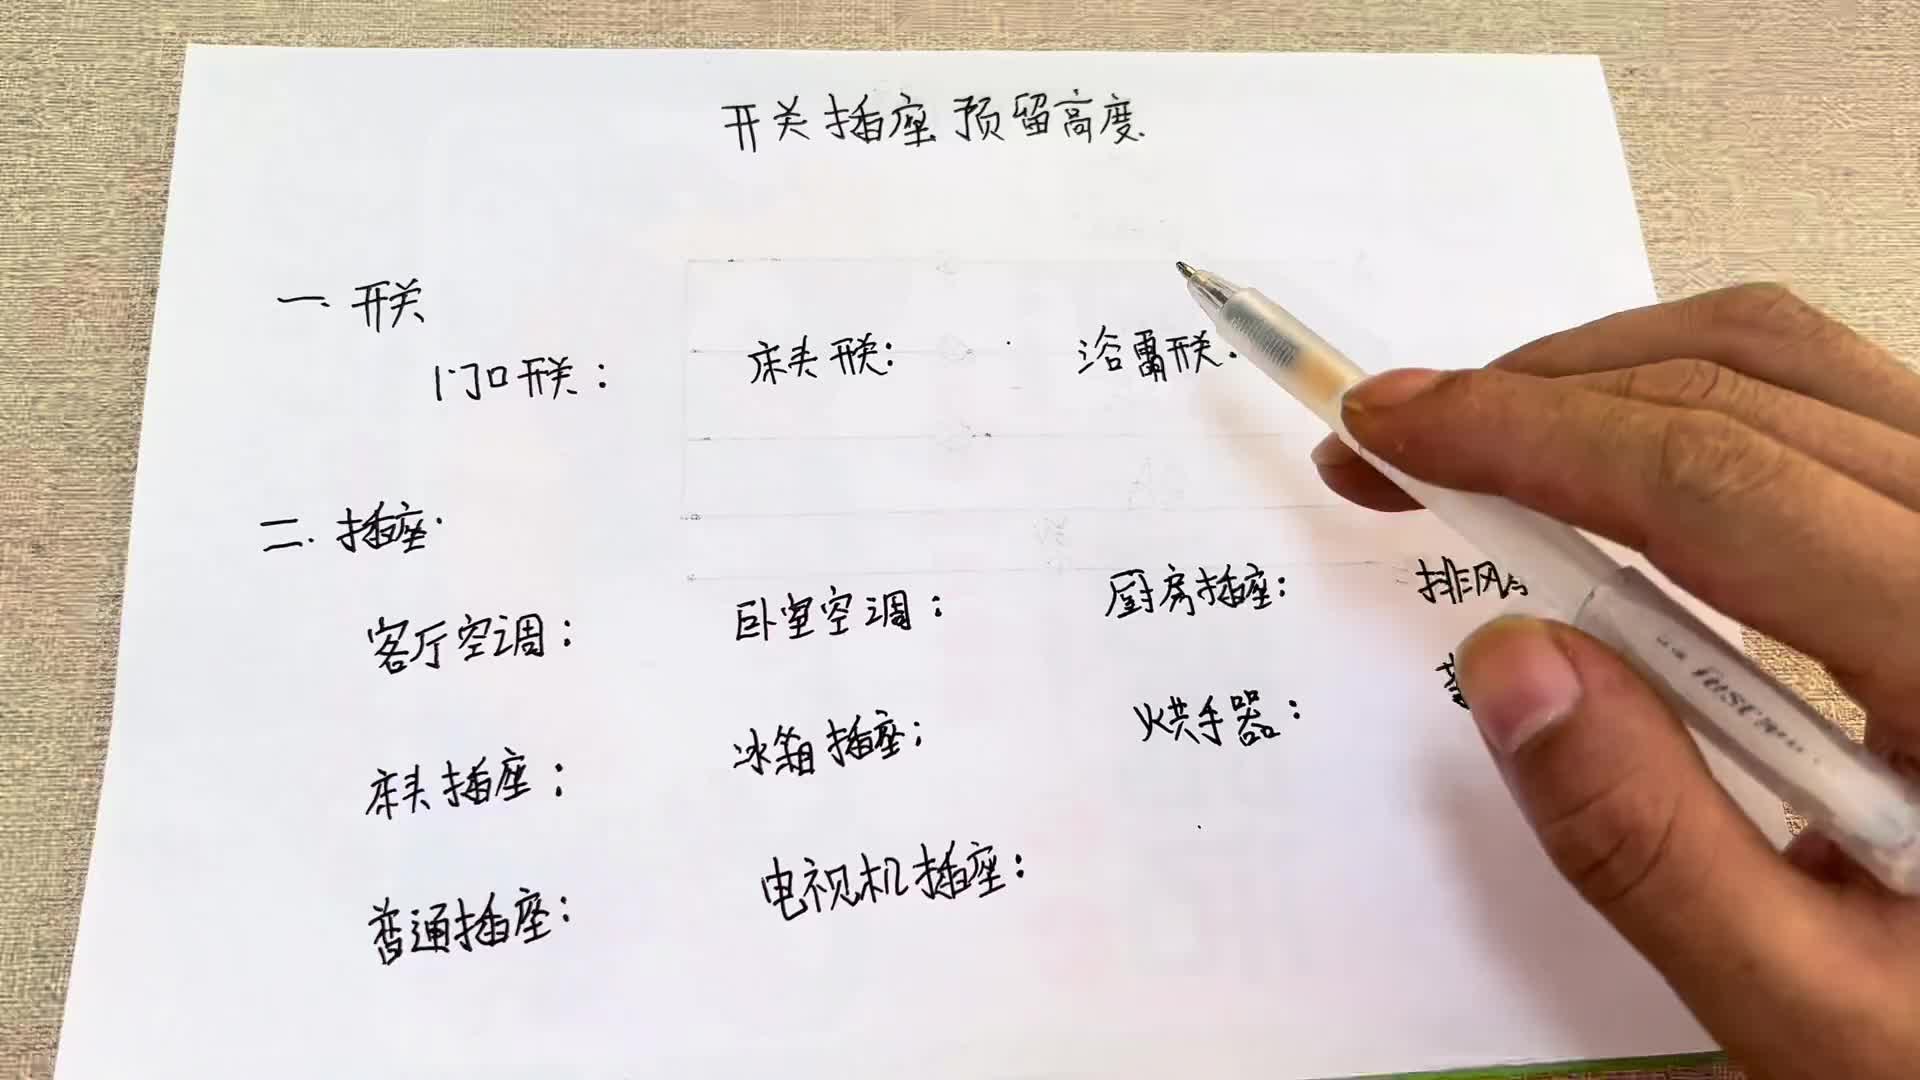 开关插座预留高度
一. 开关
门口开关： 床头开关： 浴霸开关.
二. 插座.
客厅空调： 卧室空调： 厨房插座： 排风
床头插座： 冰箱插座； 烘手器：
普通插座： 电视机插座：